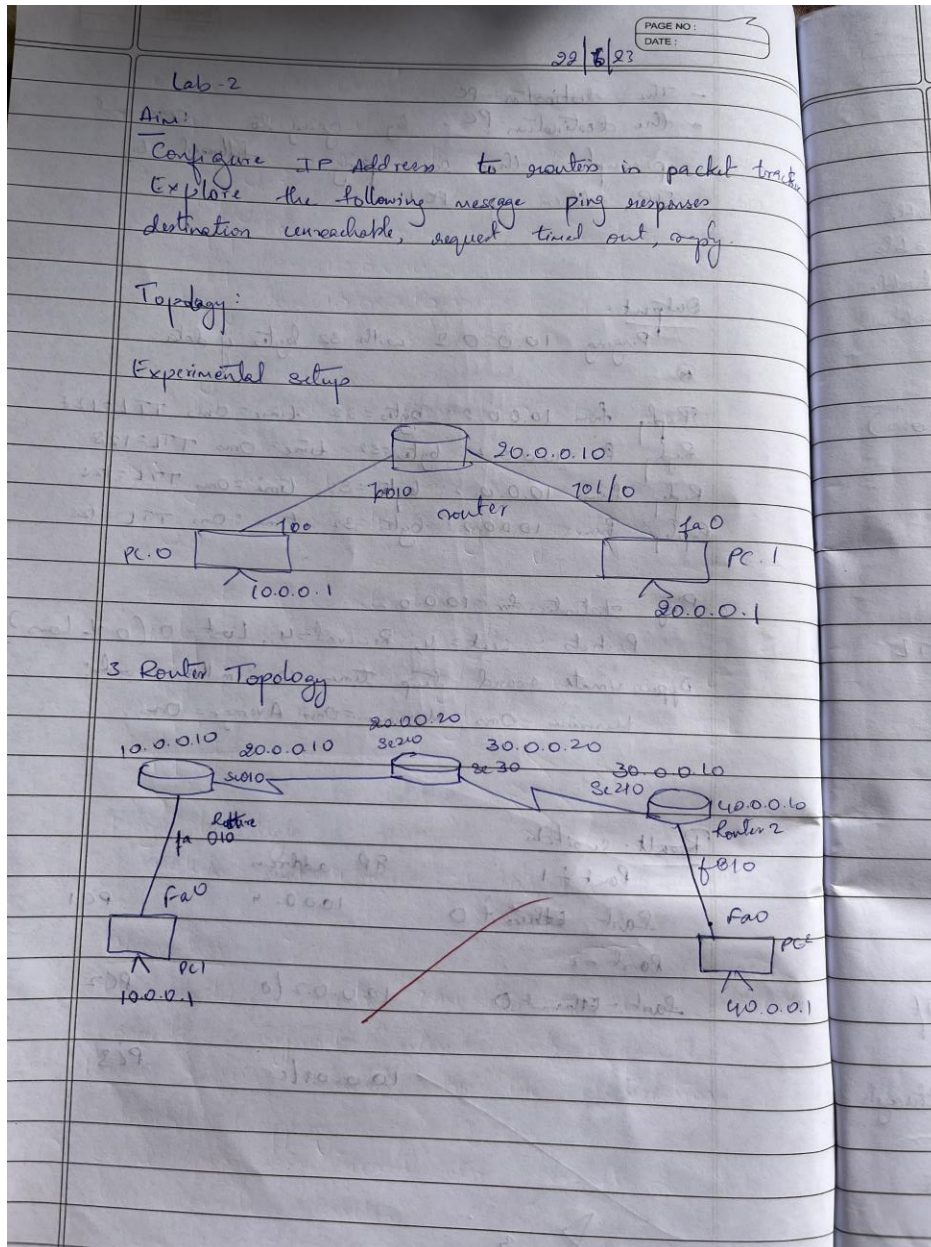 PAGE NO :
DATE :
22/6/23
Lab-2
Aim:
Configure IP Address to routers in packet tracer
Explore the following message ping responses
destination unreachable, request timed out, reply.
Topology:
Experimental setup
20.0.0.10
router
fa0
PC.0
PC.1
10.0.0.1
20.0.0.1
3 Router Topology
20.0.0.20
10.0.0.10 20.0.0.10 Se2/0 30.0.0.20
Se30 30.0.0.10
Se2/0
40.0.0.10
Router 2
fa 0/0
Fa0
Fa0
PC1
10.0.0.1
40.0.0.1